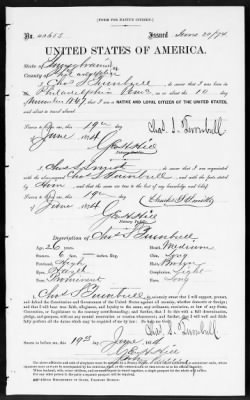 [FORM FOR NATIVE CITIZEN.]
No. 40605 Issued June 20/74
UNITED STATES OF AMERICA.
State of Pennsylvania
County of Philadelphia
I, Chas. T. Turnbull, do swear that I was born in
Philadelphia Penna on or about the 10 day
1847; that I am a NATIVE AND LOYAL CITIZEN OF THE UNITED STATES,
and about to travel abroad.
Sworn to before me, this 19th day
of June, 1874
Notary Public.
Chas. T. Turnbull
Chas. Smith, do swear that I am acquainted
with the above-named Chas. T. Turnbull, and with the facts stated
by him, and that the same are true to the best of my knowledge and belief.
Sworn to before me, this 19th
of June 1874
Notary Public.
Charles Smith
Description of Chas. T. Turnbull
Age: 26 years.
Stature: 6 feet inches, Eng.
Forehead: High
Eyes: Hazel
Nose: Prominent
Mouth: Medium
Chin: Long
Hair:
Complexion: Light
Face: Long
I, Chas. T. Turnbull, do solemnly swear that I will support, protect, and
defend the Constitution and Government of the United States against all enemies, whether domestic or foreign; and
that I will bear true faith, allegiance, and loyalty to the same, any ordinance, resolution, or law of any State,
Convention, or Legislature to the contrary notwithstanding; and further, that I do this with a full determination,
pledge, and purpose, without any mental reservation or evasion whatsoever; and further, that I will well and faith-
fully perform all the duties which may be required of me by law: So help me God.
Chas. T. Turnbull
Sworn to before me, this 19th
June 1874
Notary Public.